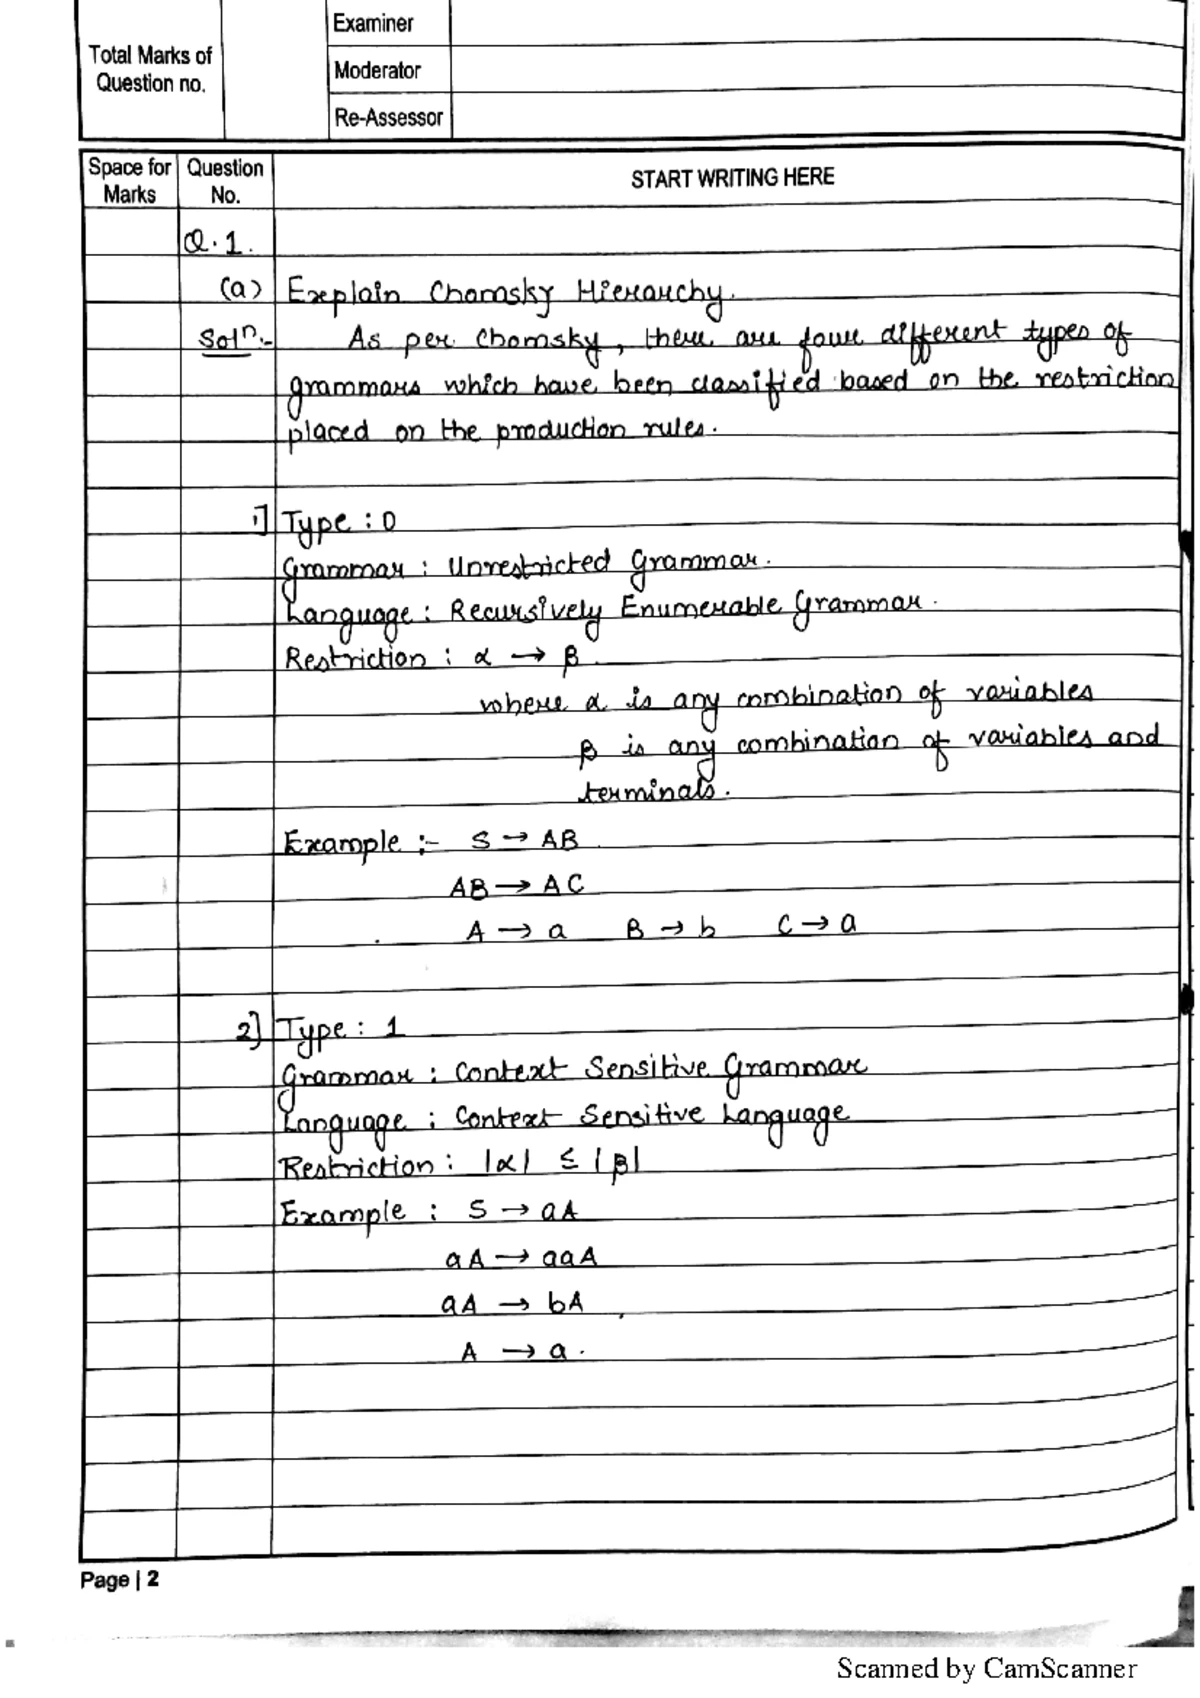 Examiner
Total Marks of
Question no.
Moderator
Re-Assessor
Space for Marks
Question No.
START WRITING HERE
Q.1.
(a) Explain Chomsky Hierarchy.
Solⁿ:- As per Chomsky, there are four different types of
grammars which have been classified based on the restriction
placed on the production rules.
1] Type : 0
Grammar : Unrestricted Grammar.
Language : Recursively Enumerable Grammar.
Restriction : α → β
where α is any combination of variables
β is any combination of variables and
terminals.
Example :- S → AB
AB → AC
A → a B → b C → a
2] Type : 1
Grammar : Context Sensitive Grammar
Language : Context Sensitive Language
Restriction : |α| ≤ |β|
Example : S → aA
aA → aaA
aA → bA
A → a.
Page | 2
Scanned by CamScanner